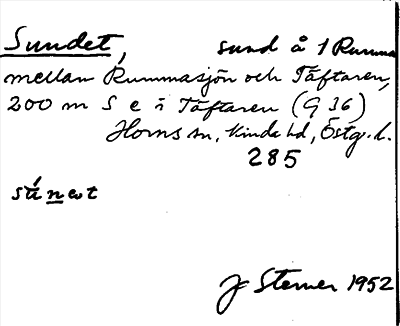 Sundet, sund å 1 Rumma
mellan Rummasjön och Täftaren,
200 m S e i Täftaren (G 36)
Horns sn, Kinda hd, Östg. l.
285
súnet
J Sterner 1952